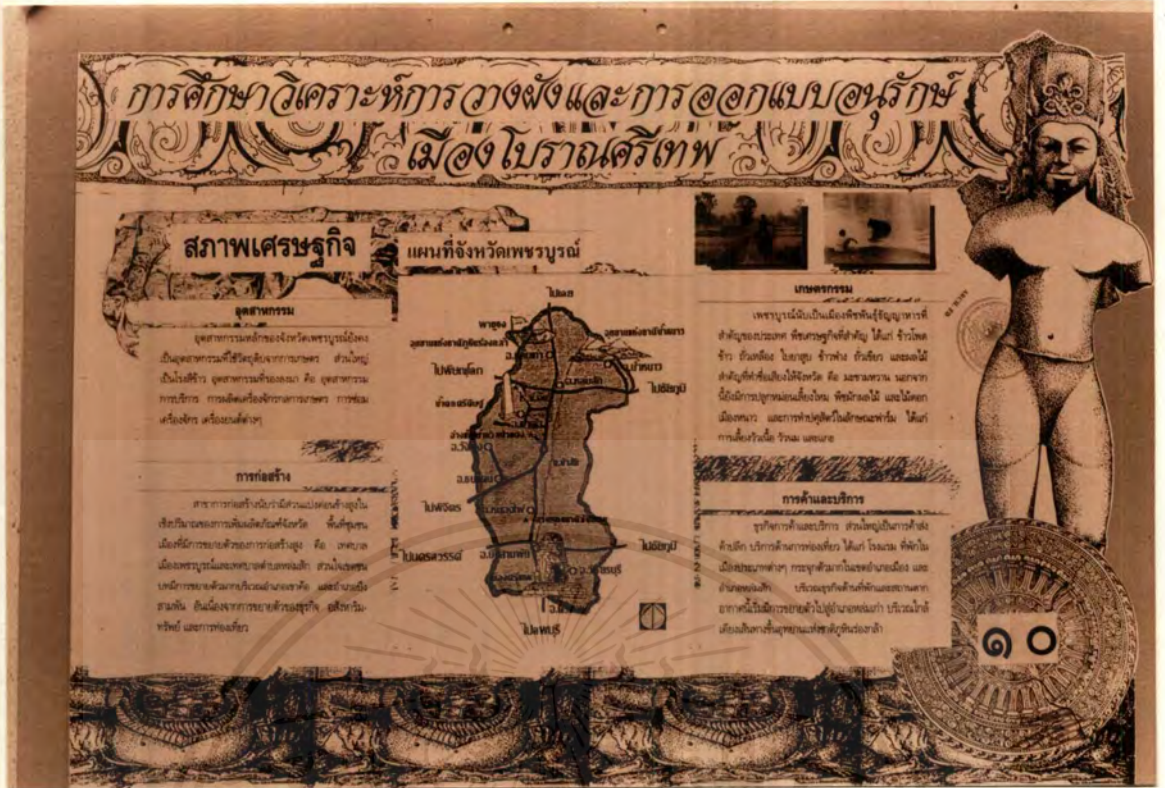 การศึกษาวิเคราะห์การวางผังและการออกแบบอนุรักษ์
เมืองโบราณศรีเทพ
สภาพเศรษฐกิจ
อุตสาหกรรม
อุตสาหกรรมหลักของจังหวัดเพชรบูรณ์ยังคง
เป็นอุตสาหกรรมที่ใช้วัตถุดิบจากการเกษตร ส่วนใหญ่
เป็นโรงสีข้าว อุตสาหกรรมที่รองลงมา คือ อุตสาหกรรม
การบริการ การผลิตเครื่องจักรกลการเกษตร การซ่อม
เครื่องจักร เครื่องยนต์ต่างๆ
การก่อสร้าง
สาขาการก่อสร้างนับว่ามีส่วนแบ่งค่อนข้างสูงใน
เชิงปริมาณของการเพิ่มผลิตภัณฑ์จังหวัด พื้นที่ชุมชน
เมืองที่มีการขยายตัวของการก่อสร้างสูง คือ เทศบาล
เมืองเพชรบูรณ์และเทศบาลตำบลหล่มสัก ส่วนในเขตชน
บทมีการขยายตัวมากบริเวณอำเภอเขาค้อ และอำเภอบึง
สามพัน อันเนื่องจากการขยายตัวของธุรกิจ อสังหาริม-
ทรัพย์ และการท่องเที่ยว
แผนที่จังหวัดเพชรบูรณ์
ไปเลย
ไปพิษณุโลก
ไปชัยภูมิ
ไปพิจิตร
ไปนครสวรรค์
ไปชัยภูมิ
ไปลพบุรี
เกษตรกรรม
เพชรบูรณ์นับเป็นเมืองพืชพันธุ์ธัญญาหารที่
สำคัญของประเทศ พืชเศรษฐกิจที่สำคัญ ได้แก่ ข้าวโพด
ข้าว ถั่วเหลือง ใบยาสูบ ข้าวฟ่าง ถั่วเขียว และผลไม้
สำคัญที่ทำชื่อเสียงให้จังหวัด คือ มะขามหวาน นอกจาก
นี้ยังมีการปลูกหม่อนเลี้ยงไหม พืชผักผลไม้ และไม้ดอก
เมืองหนาว และการทำปศุสัตว์ในลักษณะฟาร์ม ได้แก่
การเลี้ยงวัวเนื้อ วัวนม และแกะ
การค้าและบริการ
ธุรกิจการค้าและบริการ ส่วนใหญ่เป็นการค้าส่ง
ค้าปลีก บริการด้านการท่องเที่ยว ได้แก่ โรงแรม ที่พักใน
เมืองประเภทต่างๆ กระจุกตัวมากในเขตอำเภอเมือง และ
อำเภอหล่มสัก บริเวณธุรกิจด้านที่พักและสถานตาก
อากาศนี้เริ่มมีการขยายตัวไปสู่อำเภอหล่มเก่า บริเวณใกล้
เคียงเส้นทางขึ้นอุทยานแห่งชาติภูหินร่องกล้า
๑๐